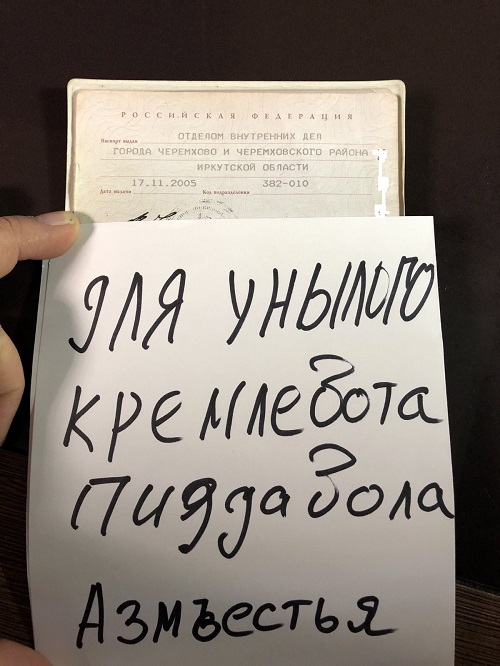 РОССИЙСКАЯ ФЕДЕРАЦИЯ
Паспорт выдан ОТДЕЛОМ ВНУТРЕННИХ ДЕЛ
ГОРОДА ЧЕРЕМХОВО И ЧЕРЕМХОВСКОГО РАЙОНА
ИРКУТСКОЙ ОБЛАСТИ
17.11.2005 382-010
Дата выдачи Код подразделения
ДЛЯ УНЫЛОГО
КРЕМЛЕВОТА
ПИДДАВОЛА
АЗМЪЕСТЬЯ